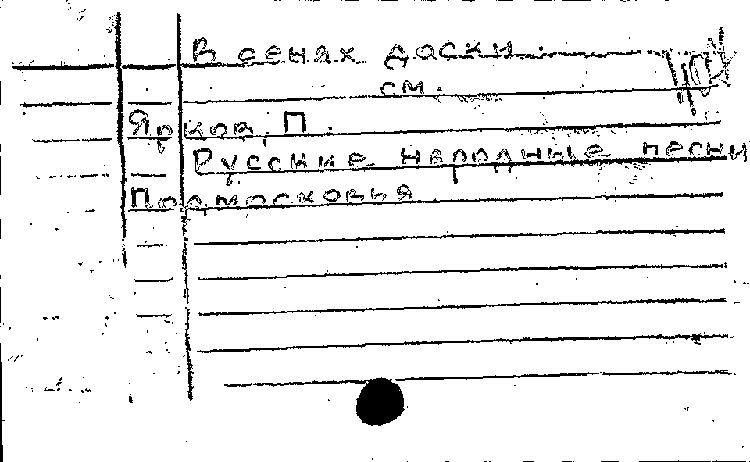 В сенях доски.
см.
Ярков, П.
Русские народные песни
Подмосковья